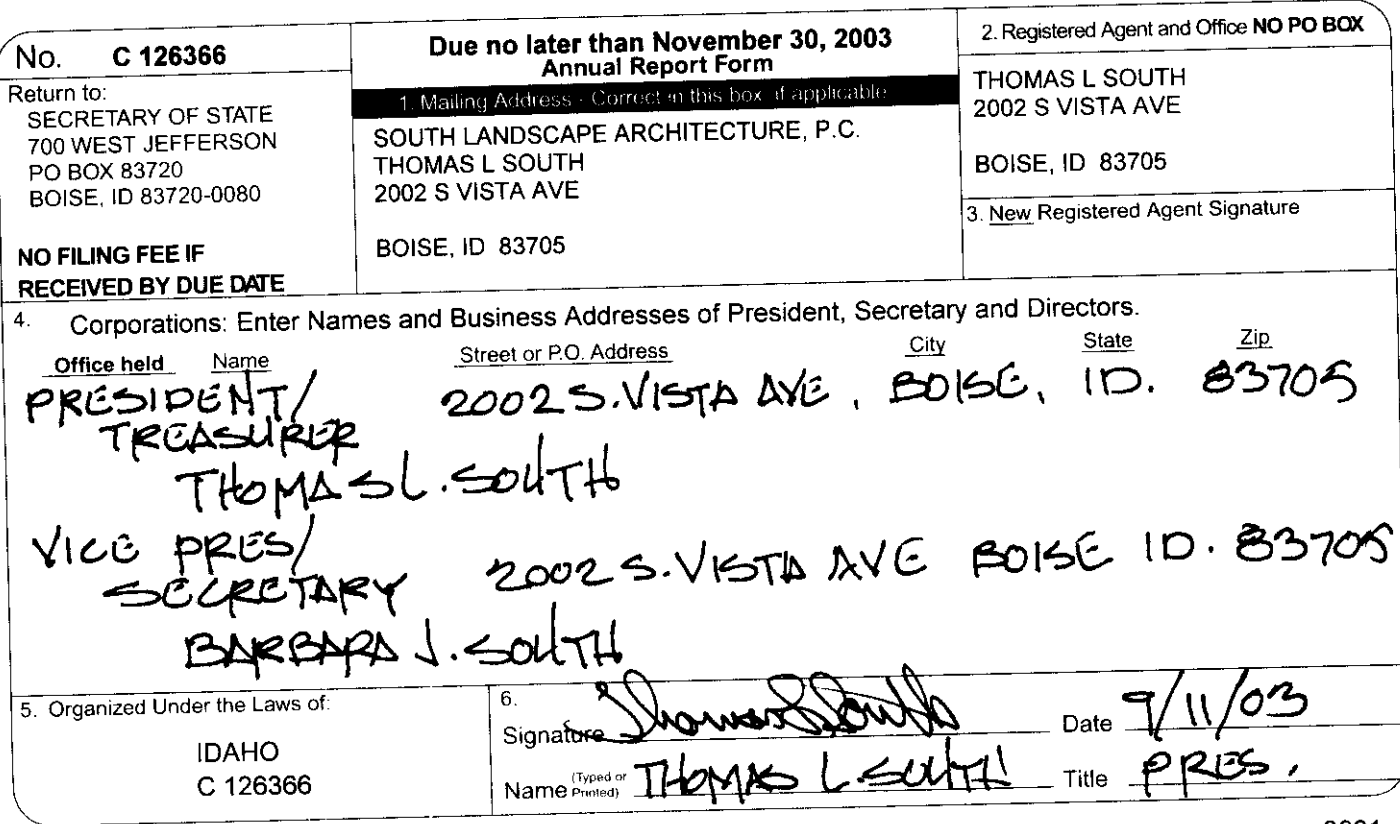 No. C 126366
Return to:
SECRETARY OF STATE
700 WEST JEFFERSON
PO BOX 83720
BOISE, ID 83720-0080
NO FILING FEE IF
RECEIVED BY DUE DATE
Due no later than November 30, 2003
Annual Report Form
1. Mailing Address - Correct in this box if applicable
SOUTH LANDSCAPE ARCHITECTURE, P.C.
THOMAS L SOUTH
2002 S VISTA AVE
BOISE, ID 83705
2. Registered Agent and Office NO PO BOX
THOMAS L SOUTH
2002 S VISTA AVE
BOISE, ID 83705
3. New Registered Agent Signature
4. Corporations: Enter Names and Business Addresses of President, Secretary and Directors.
Office held Name Street or P.O. Address City State Zip
PRESIDENT/ 2002 S. VISTA AVE, BOISE, ID. 83705
TREASURER
THOMAS L. SOUTH
VICE PRES/
SECRETARY 2002 S. VISTA AVE BOISE ID. 83705
BARBARA J. SOUTH
5. Organized Under the Laws of:
IDAHO
C 126366
6.
Signature Thomas L South Date 9/11/03
Name (Typed or Printed) THOMAS L SOUTH Title PRES.